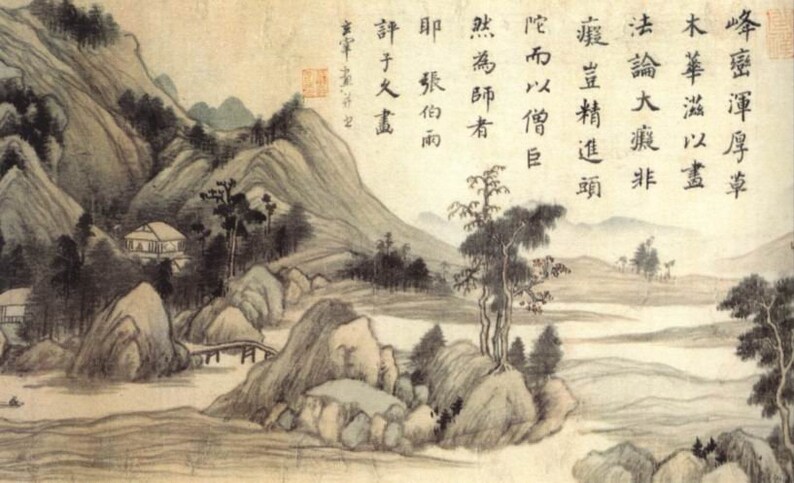 峰巒渾厚草
木華滋以畫
法論大癡非
癡豈精進頭
陀而以僧巨
然為師者
耶 張伯雨
評子久畫
玄宰畫并書